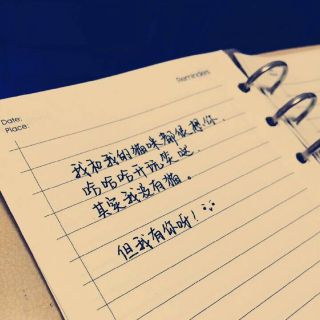 Reminders
Date:
Place:
我和我的猫咪都很想你.
哈哈哈开玩笑哒.
其实我没有猫。
但我有你呀!